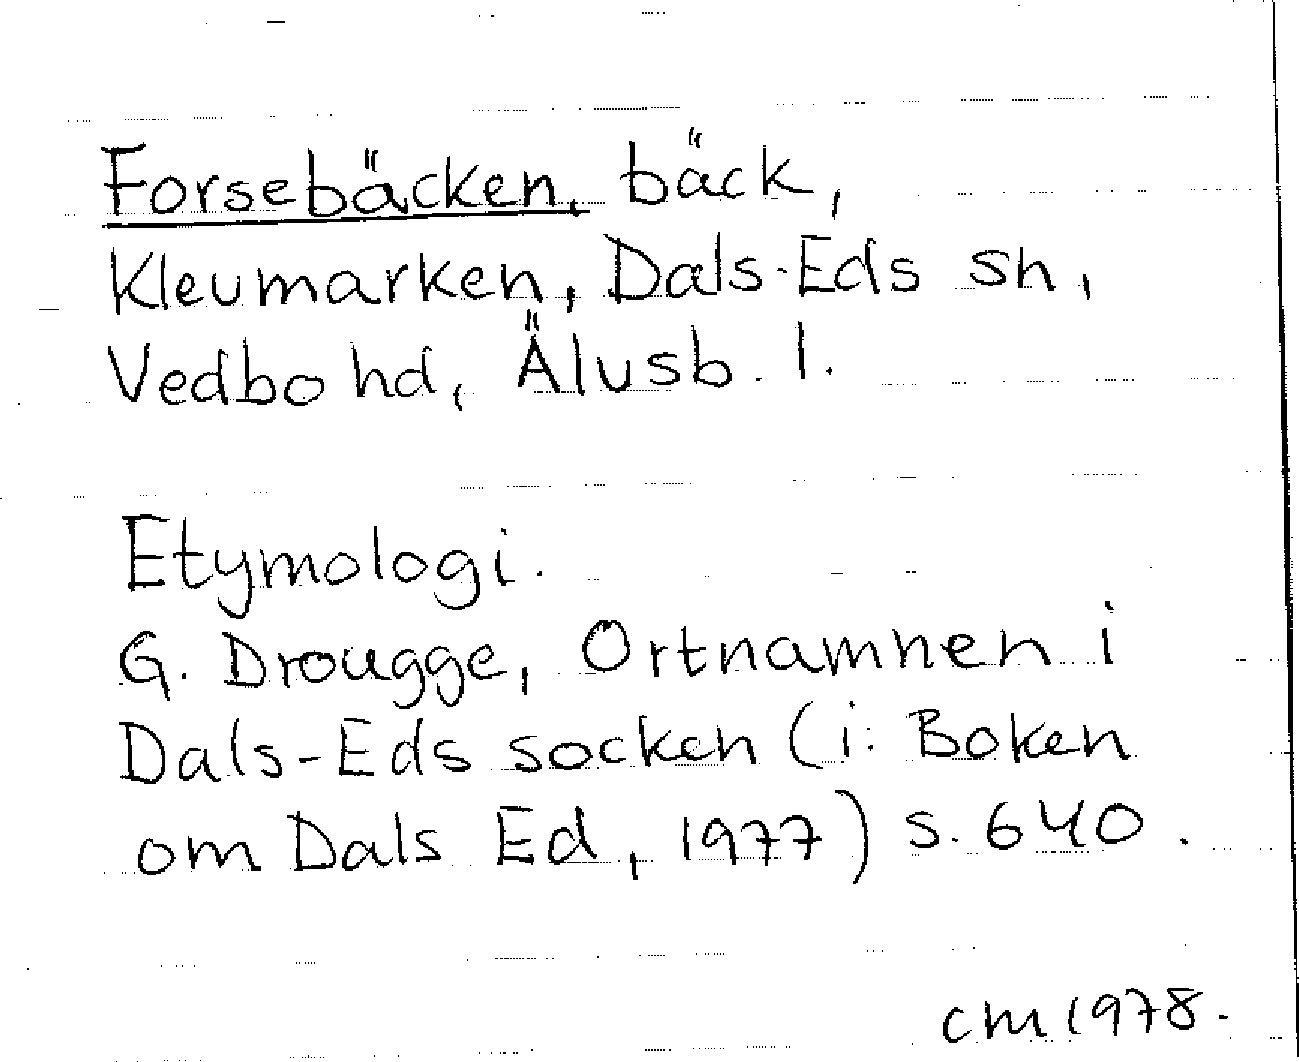 Forsebäcken, bäck,
Klevmarken, Dals-Eds sn,
Vedbo hd, Älvsb. l.
Etymologi.
G. Drougge, Ortnamnen i
Dals-Eds socken (i: Boken
om Dals Ed, 1977) s. 640.
CM 1978.